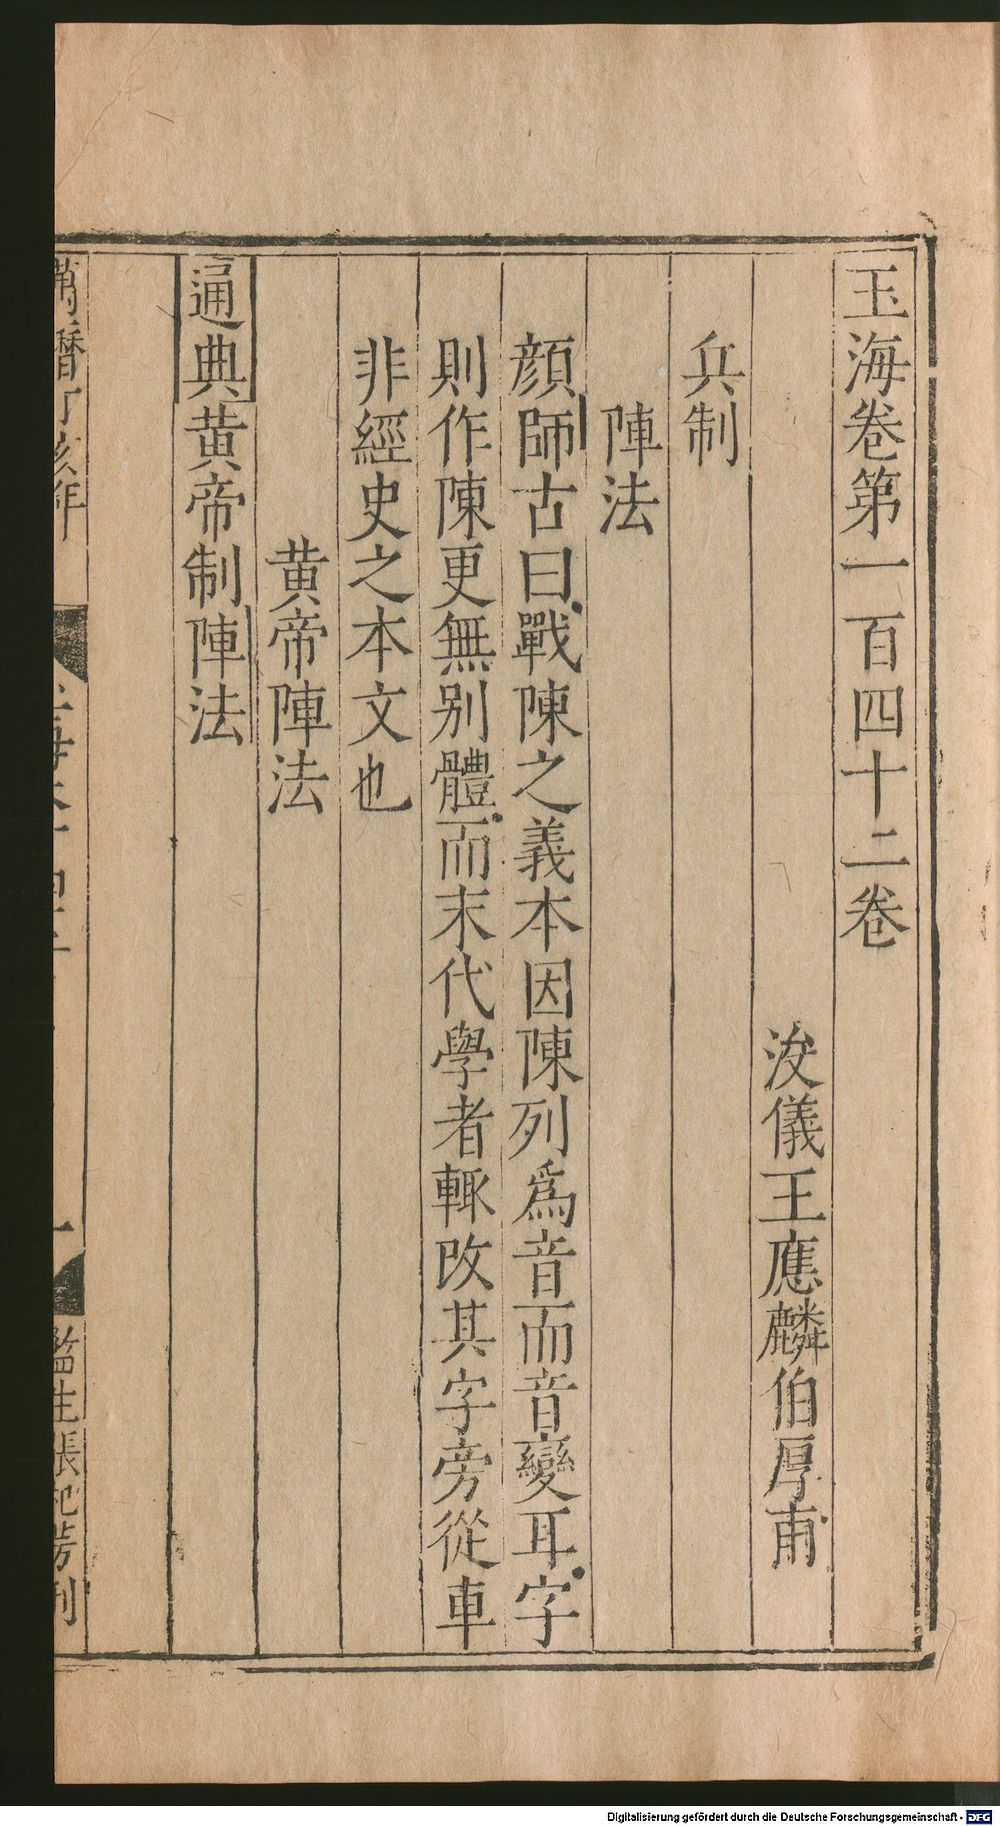 玉海卷第一百四十二卷
浚儀王應麟伯厚甫
兵制
陣法
顔師古曰戰陳之義本因陳列爲音而音變耳字
則作陳更無別體而末代學者輒改其字旁從車
非經史之本文也
黄帝陣法
通典黄帝制陣法
萬曆丁亥年
一
監生張祀芳刊
Digitalisierung gefördert durch die Deutsche Forschungsgemeinschaft - DFG